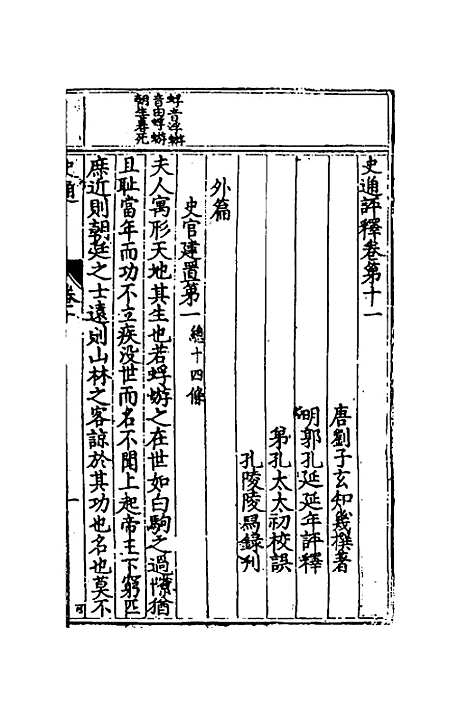 史通評釋卷第十一
唐劉子玄知幾撰著
明郭孔延延年評釋
弟孔太太初校誤
孔陵陵舄錄刋
外篇
史官建置第一 總十四條
夫人寓形天地其生也若蜉蝣之在世如白駒之過隙猶
且耻當年而功不立疾没世而名不聞上起帝王下窮匹
庶近則朝廷之士遠則山林之客諒於其功也名也莫不
蜉音浮蝣
音由蜉蝣
朝生暮死
史通
卷十
一